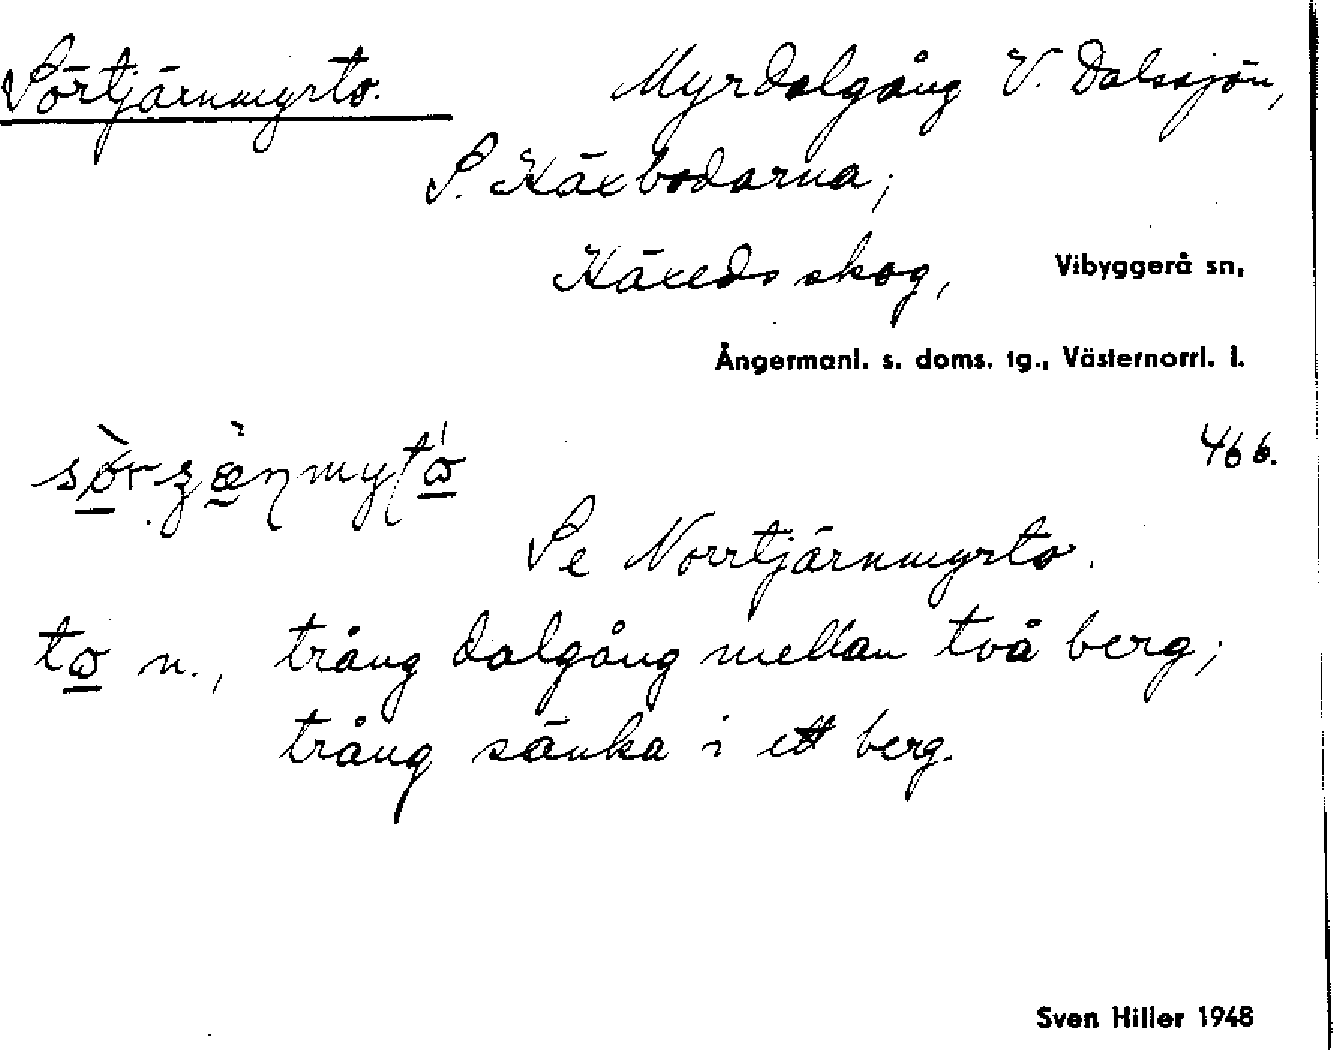 Sörtjärnmyrto. Myrdalgång V. Dalssjön,
S. Käxbodarna;
Käxeds skog, Vibyggerå sn,
Ångermanl. s. doms. tg., Västernorrl. l.
46 b.
Se Norrtjärnmyrto.
to n., trång dalgång mellan två berg;
trång sänka i ett berg.
Sven Hiller 1948